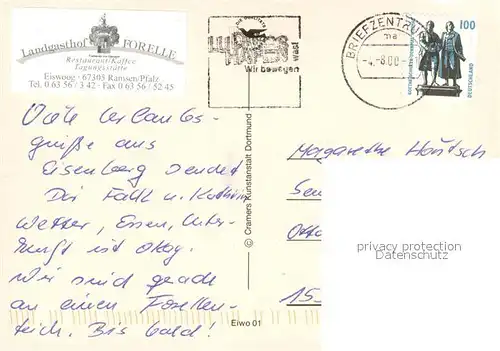 Landgasthof FORELLE
Restaurant/Kaffee
Tagungsstätte
Eiswoog · 67305 Ramsen/Pfalz
Tel. 0 63 56 / 3 42 · Fax 0 63 56 / 52 45
Wir bewegen was!
BRIEFZENTRUM
ma
-4.-8.00-
100
DEUTSCHLAND
Viele Urlaubs-
grüße aus
Eisenberg sendet
Dir Falk u. Kathrin
Wetter, Essen, Unter-
kunft ist okay.
Wir sind gerade
an einem Forellen-
teich. Bis bald!
© Cramers Kunstanstalt Dortmund
Eiwo 01
Margarethe
Sen
Otto
15
privacy protection
Datenschutz